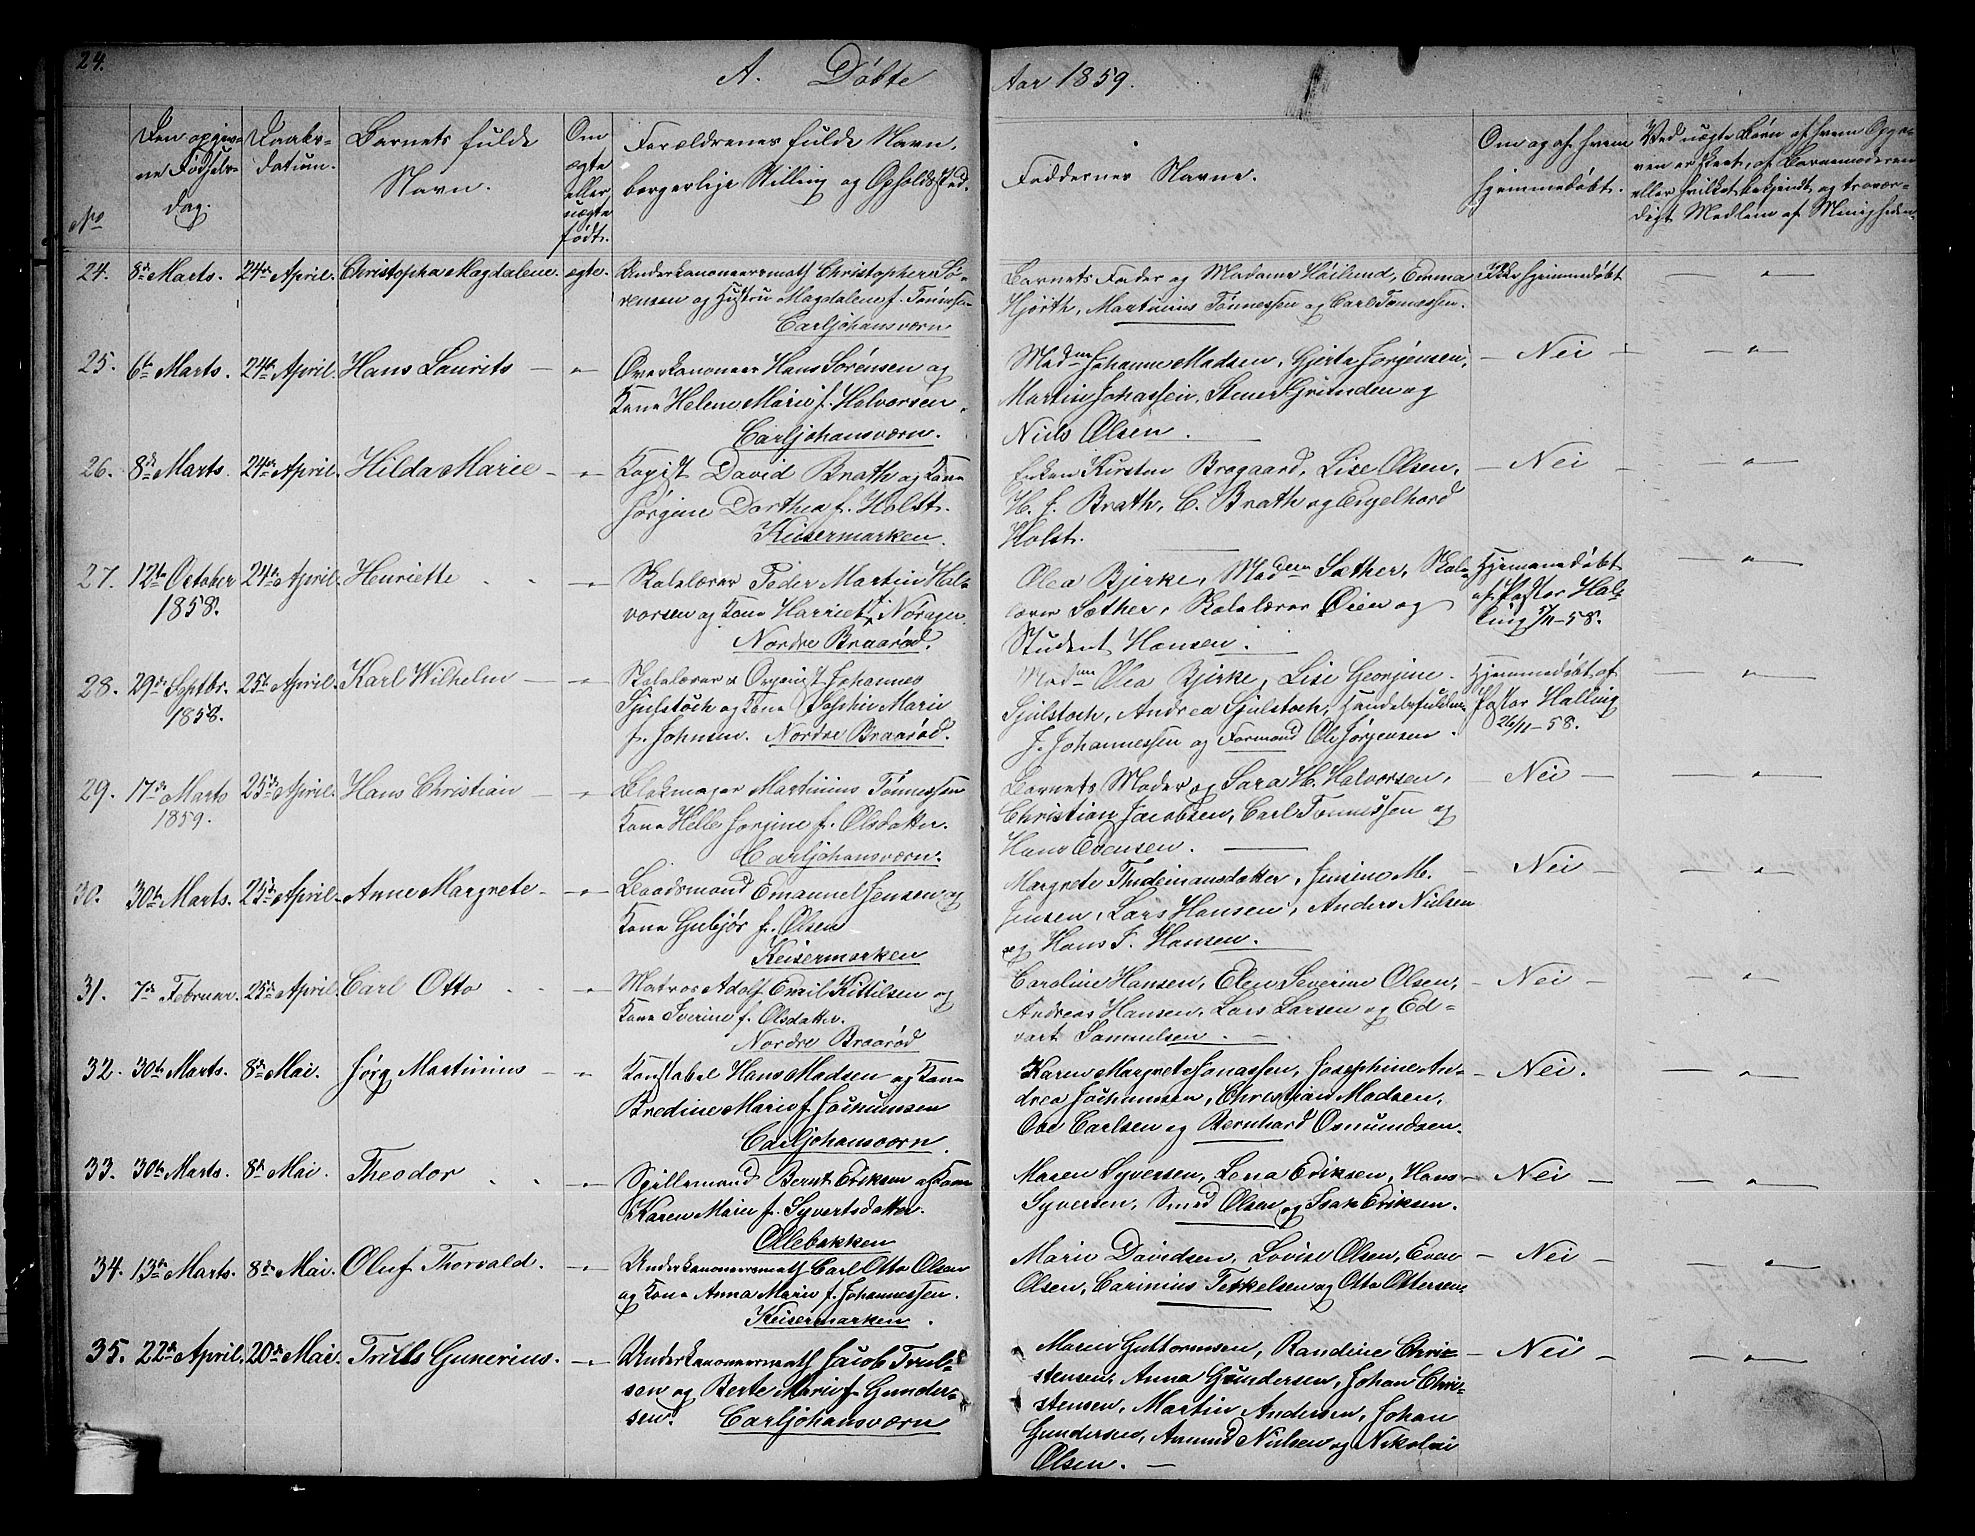 24.
A. Døbte
Aar 1859.
No
Den opgiv-
ne Fødsels-
dag.
Daabs-
datum.
Barnets fulde
Navn.
Om
ægte
eller
uægte
født.
Forældrenes fulde Navn,
borgerlige Stilling og Opholdssted.
Faddernes Navne.
Om og af hvem
hjemmedøbt.
Ved uægte Børn af hvem Opga-
ven er skeet, af Barnemoderen
eller hvilket bekjendt og trovær-
digt Medlem af Menigheden.
24. 8de Marts. 24de April. Christopha Magdalene. ægte. Underkanoneersmath Christopher Sø-
rensen og Hustru Magdalene f. Tønnesen
Carljohansværn
Barnets Fader og Madame Høilund, Emma
Hjørth, Martinius Tønnessen og Carl Tønnessen.
Ikke hjemmedøbt — " —
25. 6te Marts. 24de April. Hans Laurits — " — Overkanoneer Hans Sørensen og
Kone Helene Marie f. Halvorsen.
Carljohansværn.
Madme Johanne Madsen, Gjerta Jørgensen,
Martin Johassen, Stener Grinden og
Niels Olsen.
— Nei — — " —
26. 8de Marts. 24de April. Hilda Marie — " — Kopist David Brath og Kone
Jørgine Dorthea f. Holst.
Keisermarken.
Enken Kirsten Bragaard, Lise Olsen,
H. J. Brath, C. Brath og Engelhard
Holst.
— Nei — — " —
27. 12te October 24de April. Henriette — " — Skolelærer Peder Martin Hal-
1858.
vorsen og Kone Harriet f. Norager.
Nordre Braarød.
Olea Bjerke, Madem Sæther, Skole-
lærer Sæther, Skolelærer Øien og
Student Hansen.
Hjemmedøbt
af Pastor Hal-
ling 5/11-58.
— " —
28. 29de Septbr. 25de April. Karl Wilhelm — " — Skolelærer & Organist Johannes
1858.
Sjulstoch og Kone Sophie Marie
f. Johnsen. Nordre Braarød.
Madme Olea Bjerke, Lise Georgine
Sjulstoch, Andrea Sjulstoch, Handelsfuldm.
J. Johannessen og Formand Ole Jørgensen.
Hjemmedøbt af
Pastor Halling
26/11-58.
— " —
29. 17de Marts 25de April. Hans Christian — " — Blokmager Martinius Tønnessen
1859.
Kone Helle Jørgine f. Olsdatter.
Carljohansværn.
Barnets Moder og Sara H. Halvorsen,
Christian Jacobsen, Carl Tønnessen og
Hans Evensen.
— Nei — — " —
30. 30te Marts. 25de April. Anne Margrete — " — Baadsmand Emanuel Jensen og
Kone Gubjør f. Olsen
Keisermarken
Margrete Thidemansdatter, Jensine M.
Jensen, Lars Hansen, Anders Nielsen
og Hans F. Hansen.
— Nei — — " —
31. 7de Februar. 25de April. Carl Otto — " — Matros Adolf Emil Kittilsen og
Kone Iverine f. Olsdatter.
Nordre Braarød
Caroline Hansen, Elen Severine Olsen,
Andreas Hansen, Lars Larsen og Ed-
vart Samuelsen.
— Nei — — " —
32. 30te Marts. 8de Mai. Jørg Martinius — " — Konstabel Hans Madsen og Kone
Bredine Marie f. Jochumsen
Carljohansværn.
Karen Margrete Jonassen, Josephine An-
drea Jochumsen, Christian Madsen,
Ove Carlsen og Bernhard Osmundsen.
— Nei. — " —
33. 30te Marts. 8de Mai. Theodor — " — Spillemand Bernt Eriksen og Kone
Karen Marie f. Syvertsdatter.
Ollebakken
Maren Syversen, Lena Eriksen, Hans
Syversen, Smed Olsen og Isak Eriksen.
— Nei — — " —
34. 13de Marts. 8de Mai. Oluf Thorvald. — " — Underkanoneersmath Carl Otto Olsen
og Kone Anna Marie f. Johannessen.
Keisermarken.
Marie Davidsen, Lovise Olsen, Even
Olsen, Carinius Terkelsen og Otto Ottersen.
— Nei — — " —
35. 22de April. 20de Mai. Trills Gunerius. — " — Underkanoneersmath Jacob Trul-
sen og Berte Marie f. Gunder-
sen. Carljohansværn
Maren Guttormsen, Randine Chri-
stensen, Anna Gundersen, Johan Chri-
stensen, Martin Andersen, Johan
Gundersen, Amund Nielsen og Nikolai
Olsen. —
— Nei — — " —